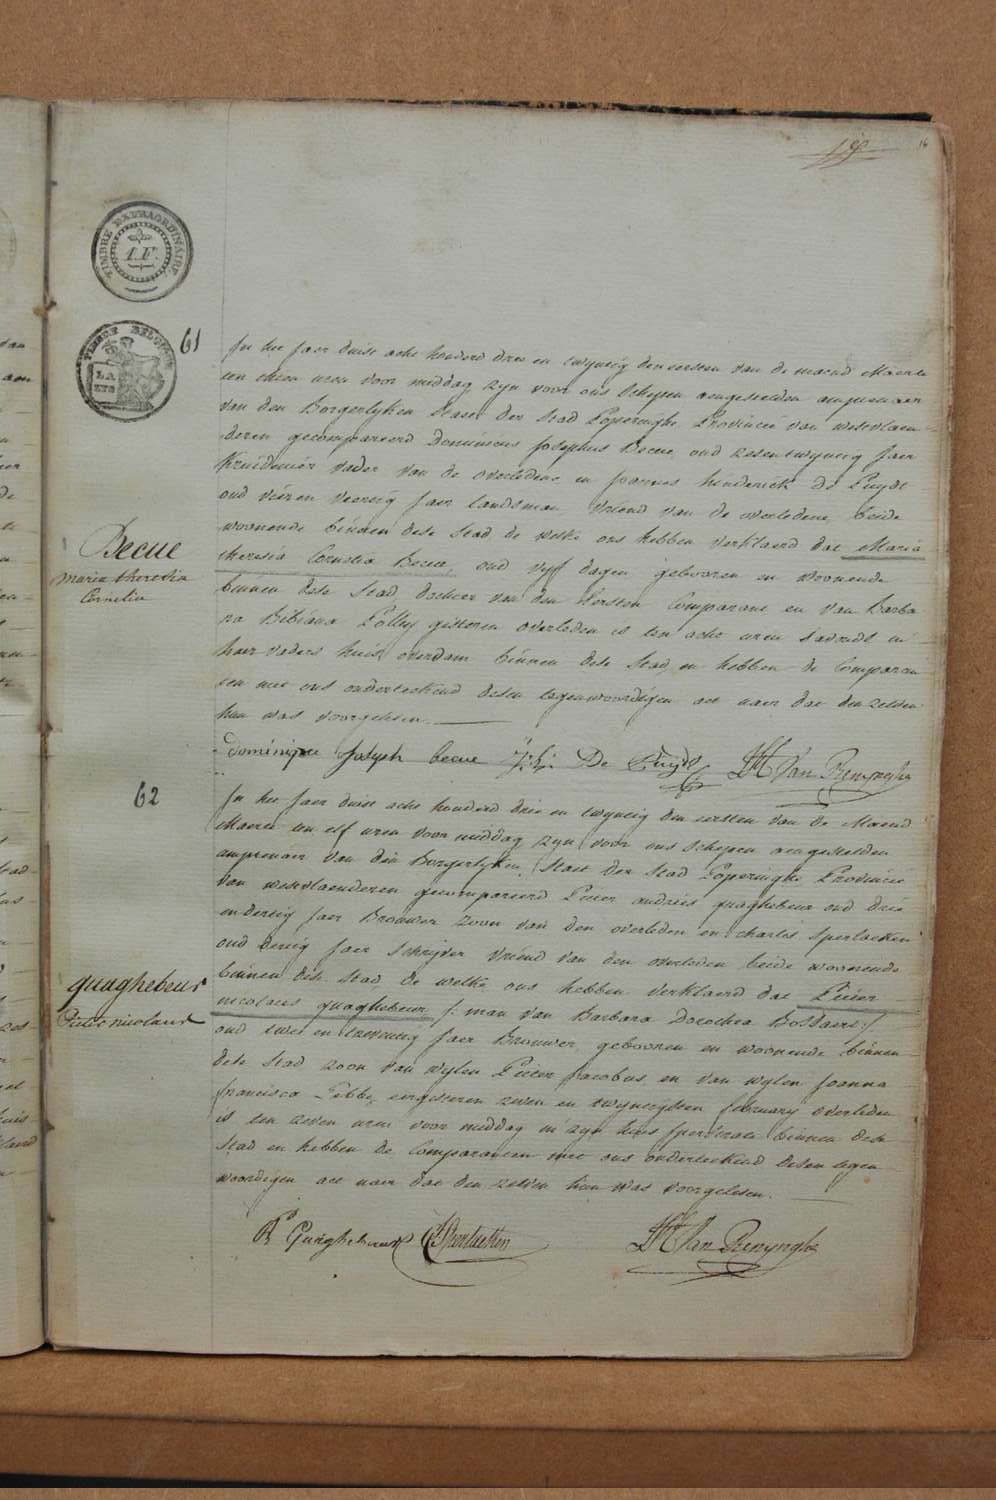 16
TIMBRE EXTRAORDINAIRE
1.F.
TIMBRE
61
In het Jaer duist acht honderd drie en twyntig den eersten van de maend Maerte
ten thien uren voor middag zyn voor ons Schepen aengestelden amptenaer
van den Borgerlyken Staet der Stad Poperinghe Provincie van westvlaen-
deren gecompareerd Dominicus Josephus Becue, oud zesentwyntig Jaer
Kruidenier vader van de overledene en Joannes henderick De Puydt
oud vier en veertig Jaer landsman, vriend van de overledene, beide
woonende binnen dese Stad de welke ons hebben verklaerd dat Maria
theresia Cornelia Becue, oud vyf dagen gebooren en woonende
binnen dese Stad, dochter van den Eersten Comparant en van Barba
ra Bibiana Polley gisteren overleden is ten acht uren s'avonds in
haer vaders huis, overdam binnen dese Stad, en hebben de Comparan
ten met ons onderteekend desen tegenwoordigen act naer dat den zelven
hun was voorgelesen.
Becue
Maria theresia
Cornelia
Dominique Joseph becue J: h: De Puydt JH Van Renynghe
62
In het Jaer duist acht honderd drie en twyntig den eersten van de Maend
Maerte ten elf uren voor middag, zyn voor ons Schepen aengestelden
amptenaer van den Borgerlyken Staet der Stad Poperinghe Provincie
van westvlaenderen gecompareerd Pieter andries quaghebeur oud drie
endertig Jaer Brouwer zoon van den overleden en charles Sperlaeken
oud dertig Jaer Schryver vriend van den overleden beide woonende
binnen dese Stad de welke ons hebben verklaerd dat Pieter
nicolaus quaghebeur /: man van Barbara Dorothea Bossaert :/
oud twee en tzeventig Jaer Brouwer, gebooren en woonende binnen
dese Stad zoon van wylen Pieter Jacobus en van wylen Joanna
francisca eergisteren zeven en twyntigsten february overleden
is ten zeven uren voor middag in zyn huis binnen dese
Stad en hebben de Comparanten met ons onderteekend desen tegen
woordigen act naer dat den zelven hun was voorgelesen.
quaghebeur
Pieter nicolaus
Quaghebeur Sperlaeken JH Van Renynghe